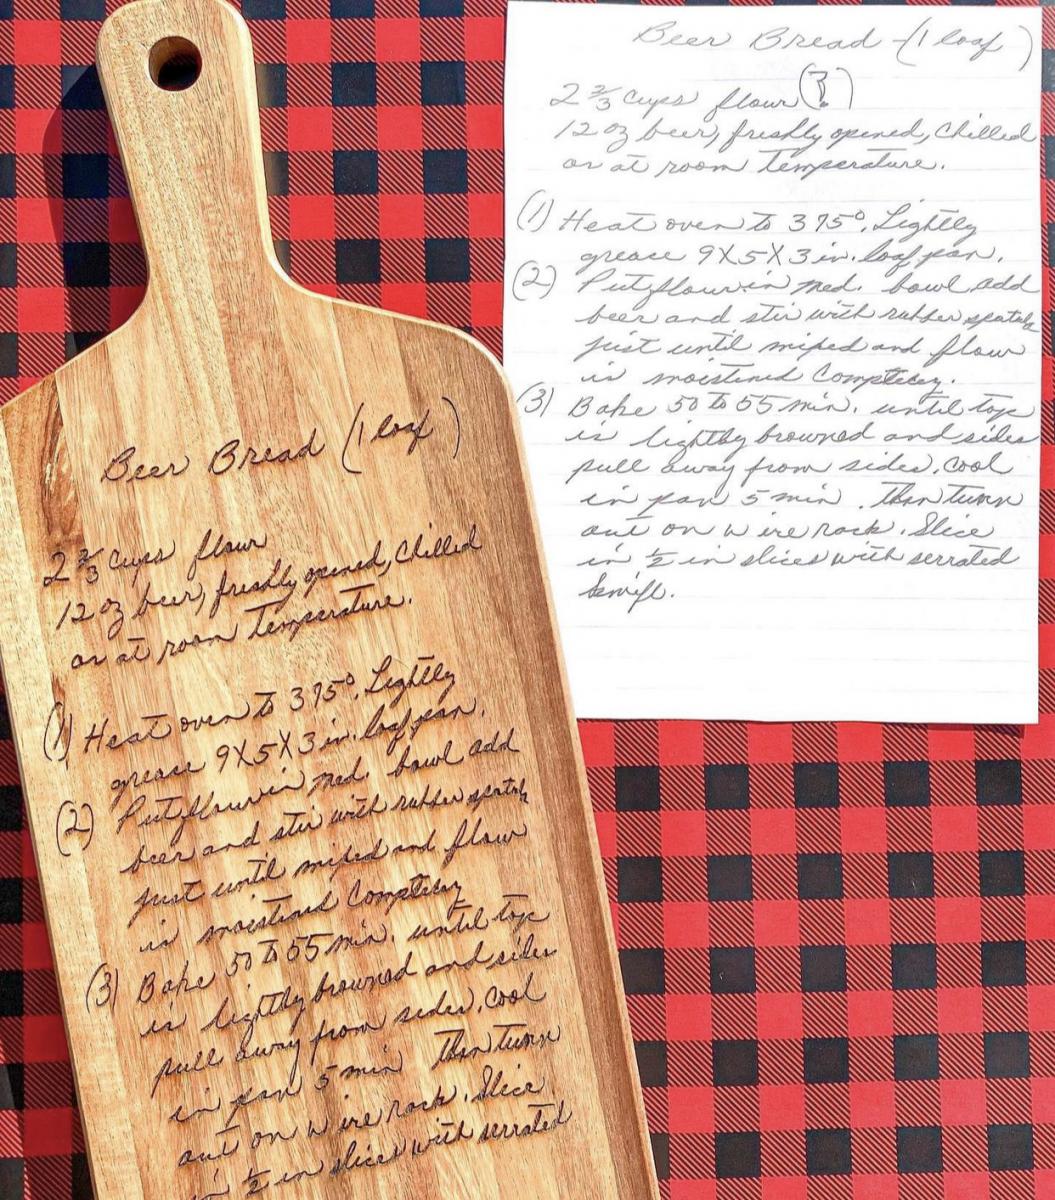 Beer Bread (1 loaf)
2 2/3 cups flour
12 oz beer, freshly opened, Chilled
or at room Temperature.
(1) Heat oven to 375°. Lightly
grease 9X5X3 in. loaf pan.
(2) Put flour in med. bowl add
beer and stir with rubber spatula
just until mixed and flour
is moistened Completely
(3) Bake 50 to 55 min. until top
is lightly browned and sides
pull away from sides. Cool
in pan 5 min Then turn
out on wire rack. Slice
in 1/2 in slices with serrated
Beer Bread - (1 loaf)
2 2/3 cups flour (?)
12 oz beer, freshly opened, Chilled
or at room Temperature.
(1) Heat oven to 375°. Lightly
grease 9X5X3 in. loaf pan.
(2) Put flour in med. bowl add
beer and stir with rubber spatula
just until mixed and flour
is moistened Completely.
(3) Bake 50 to 55 min. until top
is lightly browned and sides
pull away from sides. Cool
in pan 5 min. Then turn
out on wire rack. Slice
in 1/2 in slices with serrated